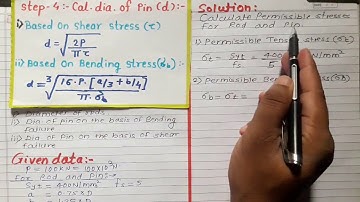 step 4:- Cal. dia. of Pin (d):-
i) Based on Shear stress (τ)
d = √(2P / πτ)
ii) Based on Bending stress (σb)
d = ∛(16·P·[a/3 + b/4] / π·σb)
ii) Dia of pin on the basis of Bending
failure
iii) Dia of Pin on the basis of shear
failure
Given data:-
P = 100KN = 100×10³N
For Rod and Pins:-
Syt = 400N/mm² fs = 5
a = 0.75×D
b = 1.25×D
Solution:-
Calculate Permissible stresses
For Rod and Pin.
1) Permissible Tensile stress (σt)
σt = Syt = 400 N/mm²
5
2) Permissible Bending stress (σb)
σb = σt =